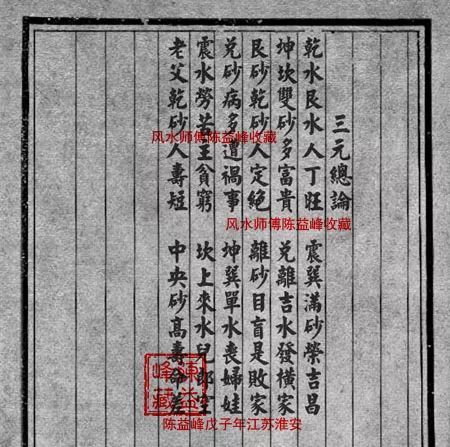 三元總論
乾水艮水人丁旺 震巽滿砂榮吉昌
坤坎雙砂多富貴 兌離吉水發橫家
艮砂乾砂人定絕 離砂目盲是敗家
兌砂病多遭禍事 坤巽單水喪婦娃
震水勞苦主貧窮 坎上來水兒郎空
老父乾砂人壽短 中央砂高壽命差
风水师傅陈益峰收藏
风水师傅陈益峰收藏
陳益峰藏
陈益峰戊子年江苏淮安